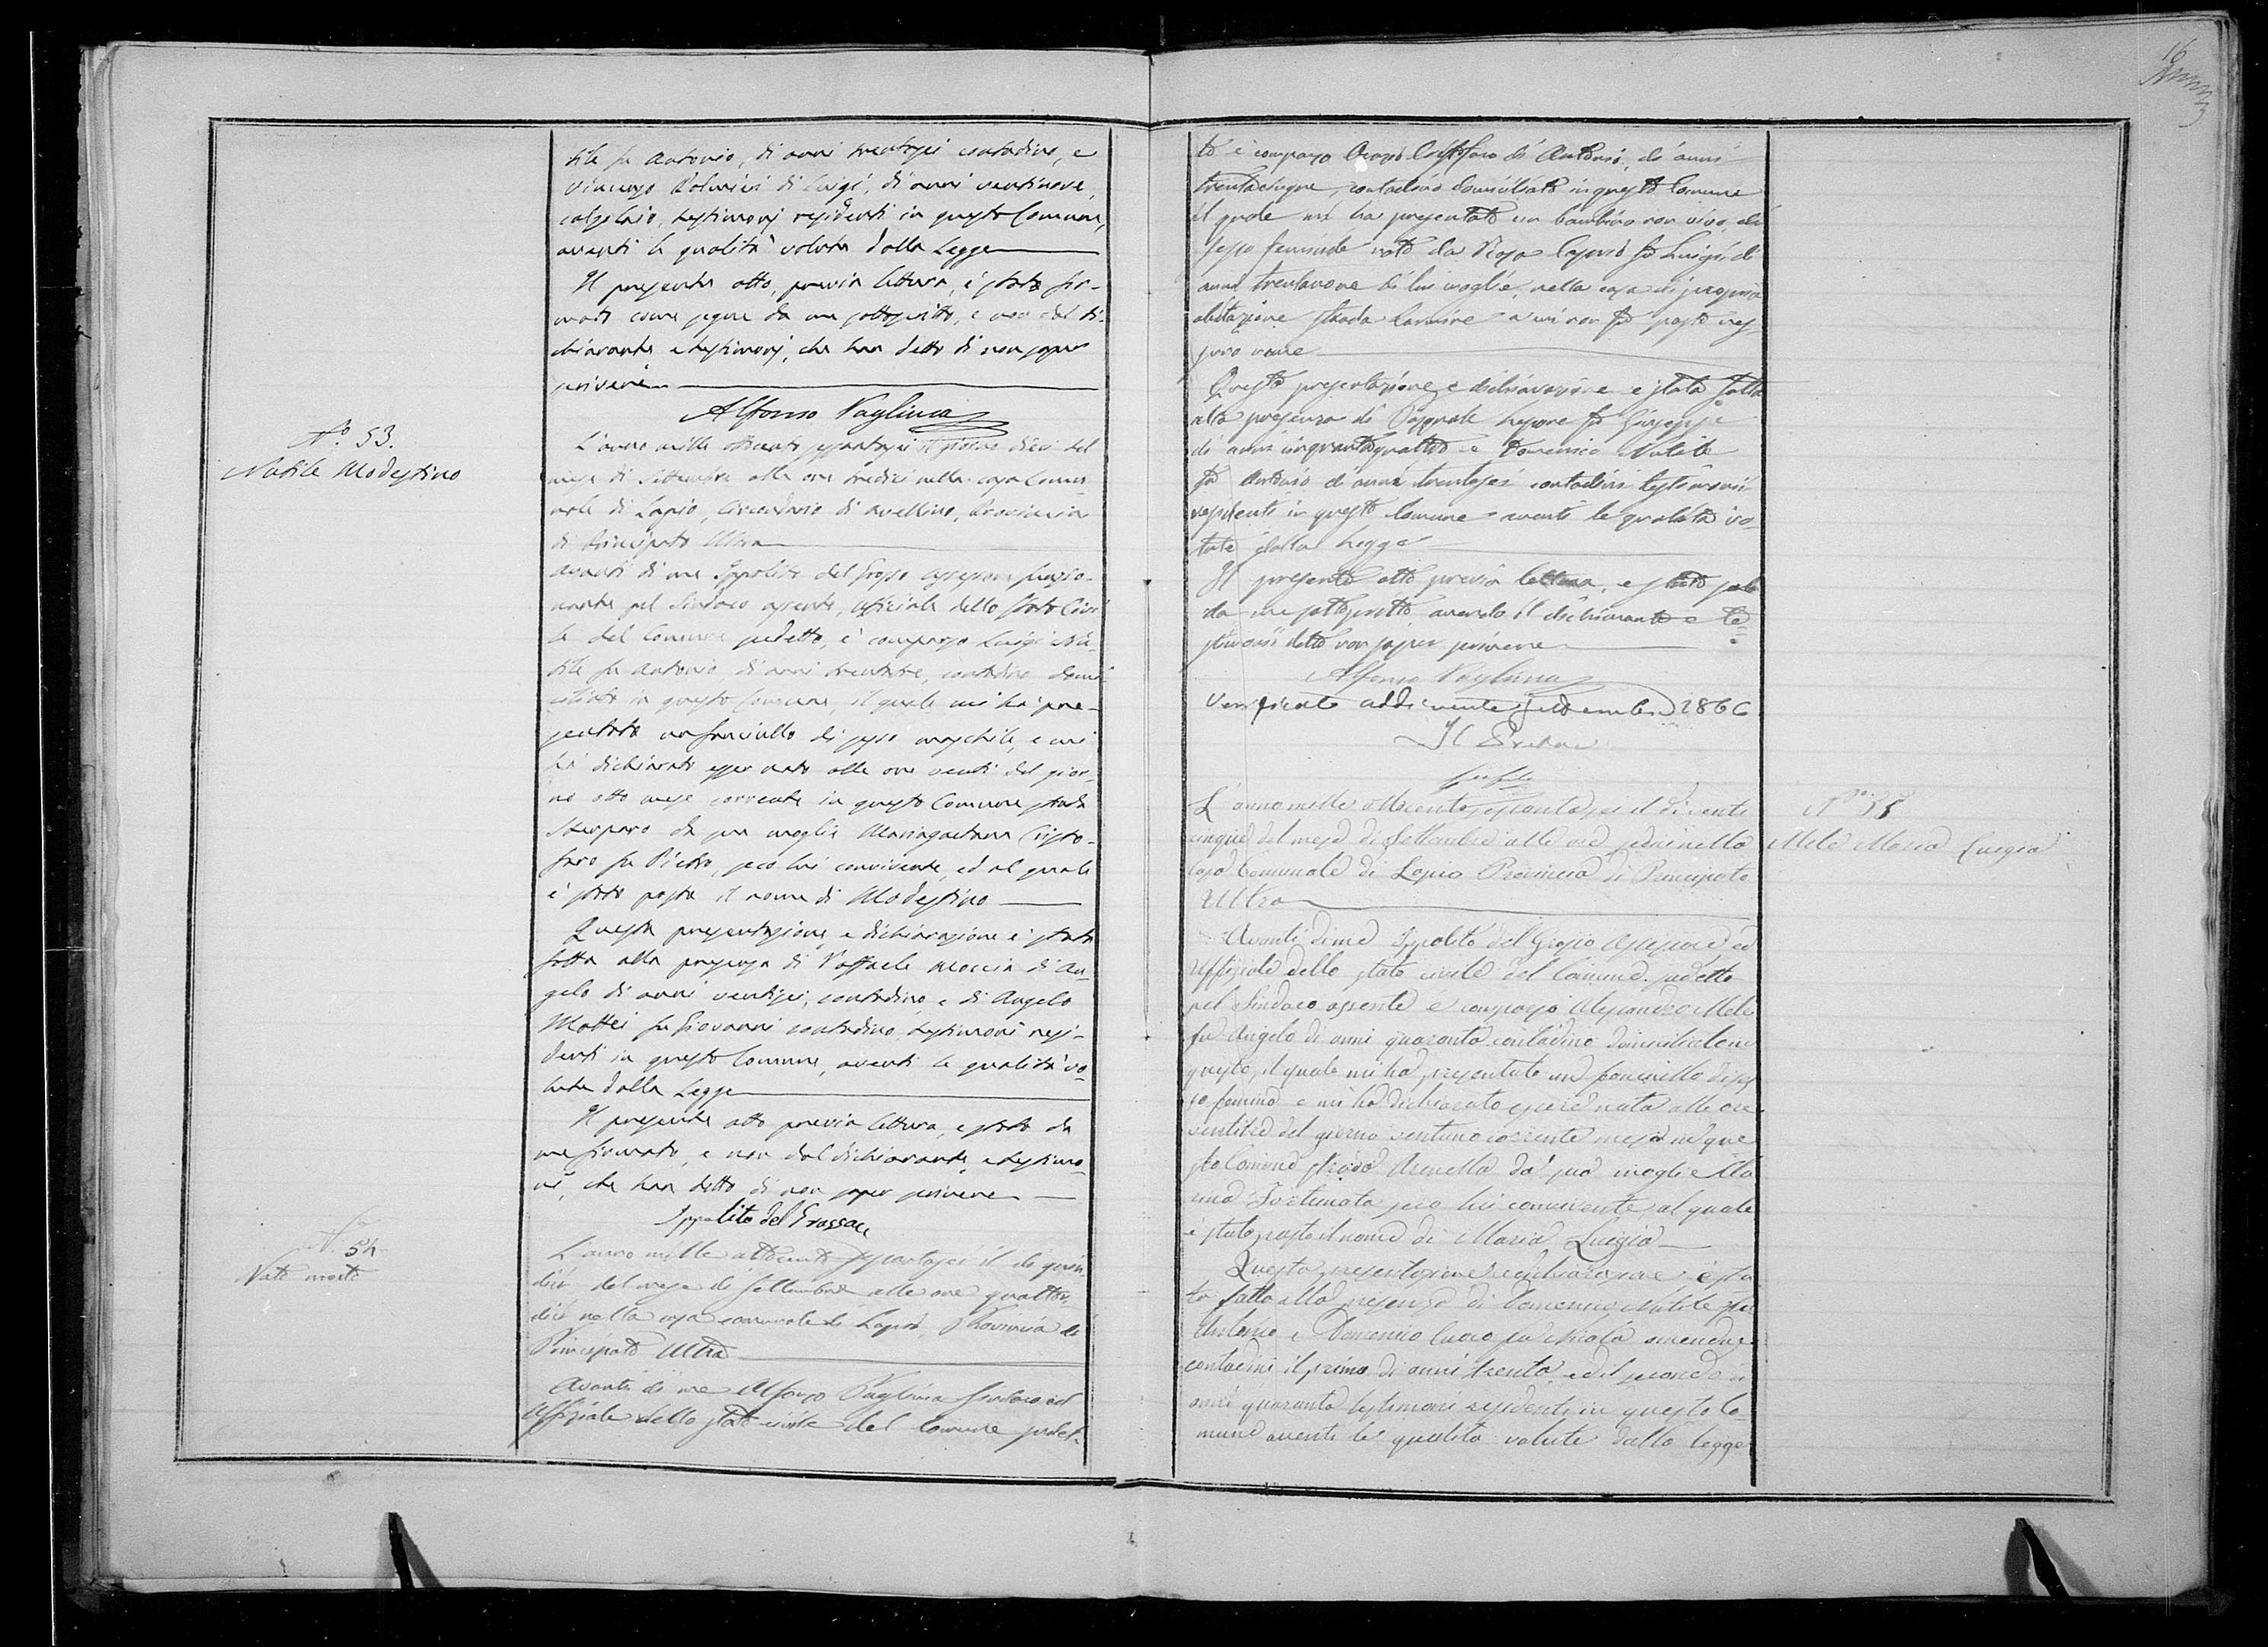 16
tile fu Antonio, di anni trentasei contadino, e
Vincenzo di Luigi, di anni ventinove,
calzolaio, testimonj residenti in questo Comune,
aventi le qualità volute dalla Legge
Il presente atto, previa lettura, è stato fir-
mato come segue da me sottoscritto, e non dal di-
chiarante e testimonj, che han detto di non saper
scrivere
Alfonso Vaglivica
N.° 53.
Nutile Modestino
L'anno mille ottocento sessantasei il giorno dieci del
mese di Settembre alle ore tredici nella casa Comu-
nale di Lapio, Circondario di Avellino, Provincia
di Principato Ultra
avanti di me Ippolito del Grosso assessore funzio-
nante pel Sindaco assente, Ufficiale dello Stato Civi-
le del Comune sudetto, è comparso Luigi Nu-
tile fu Antonio di anni trentatre, contadino domi
ciliato in questo Comune, il quale mi ha pre-
sentato un fanciullo di sesso maschile, e mi
ha dichiarato esser nato alle ore venti del gior-
no otto mese corrente in questo Comune strada
da sua moglie Mariagaetana Cristo-
faro fu Pietro, seco lui convivente, ed al quale
è stato posto il nome di Modestino
Questa presentazione e dichiarazione è stata
fatta alla presenza di Raffaele Moccia di An-
gelo di anni ventisei, contadino, e di Angelo
Mattei fu Giovanni contadino, testimoni resi-
denti in questo Comune, aventi le qualità vo-
lute dalla Legge
Il presente atto previa lettura, e stato da
me firmato, e non dal dichiarante, e testimo-
ni, che han detto di non saper scrivere
Ippolito del Grosso
N. 54
Nato morto
L'anno mille ottocento sessantasei il di quin
dici del mese di Settembre alle ore quattor
dici nella casa comunale di Lapio Provincia di
Principato Ultra
Avanti di me Alfonso Vaglivica Sindaco ed
Uffiziale dello stato civile del Comune sudet-
to è comparso Cristofaro di Antonio, di anni
trentacinque, contadino domiciliato in questo Comune
il quale mi ha presentato un bambino non vivo, di
sesso feminile nato da Rosa Caputo fu Luigi di
anni trentanove di lui moglie, nella casa di propria
abitazione strada Carmine a cui non fu posto nes
suno nome
Questa presentazione e dichiarazione e stata fatta
alla presenza di Pasquale Lepore fu Giuseppe
di anni cinquantaquattro e Domenico Nutile
fu Antonio di anni trentasei contadini testimonii
residenti in questo Comune aventi le qualità vo-
lute dalla Legge
Il presente atto previa lettura, e stato solo
da me sottoscritto, avendo il dichiarante e te=
stimonii detto non saper scrivere
Alfonso Vaglivica
Verificato addi venti Settembre 1866
Il Pretore
N.° 55
Mele Maria Luigia
L'anno mille ottocento sessantasei il di venti
cinque del mese di Settembre alle ore sedici nella
Casa Comunale di Lapio Provincia di Principato
Ultra
Avanti di me Ippolito del Grosso Assessore ed
Uffiziale dello stato civile del Comune sudetto
pel Sindaco assente è comparso Alesandro Mele
fu Angelo di anni quaranta contadino domiciliato in
questo, il quale mi ha presentato un fanciullo di ses
so femino e mi ha dichiarato essere nata alle ore
ventitre del giorno ventuno corrente mese in que
sto Comune strada Arenella da sua moglie Ma
rino Fortunata seco lui convivente, al quale
è stato posto il nome di Maria Luigia
Questa presentazione e dichiarazione è sta
ta fatta alla presenza di Domenico Nutile fu
Antonio e Domenico fu Nicola amendue
contadini il primo di anni trenta ed il secondo di
anni quaranta testimoni residenti in questo Co-
mune aventi le qualità volute dalla legge